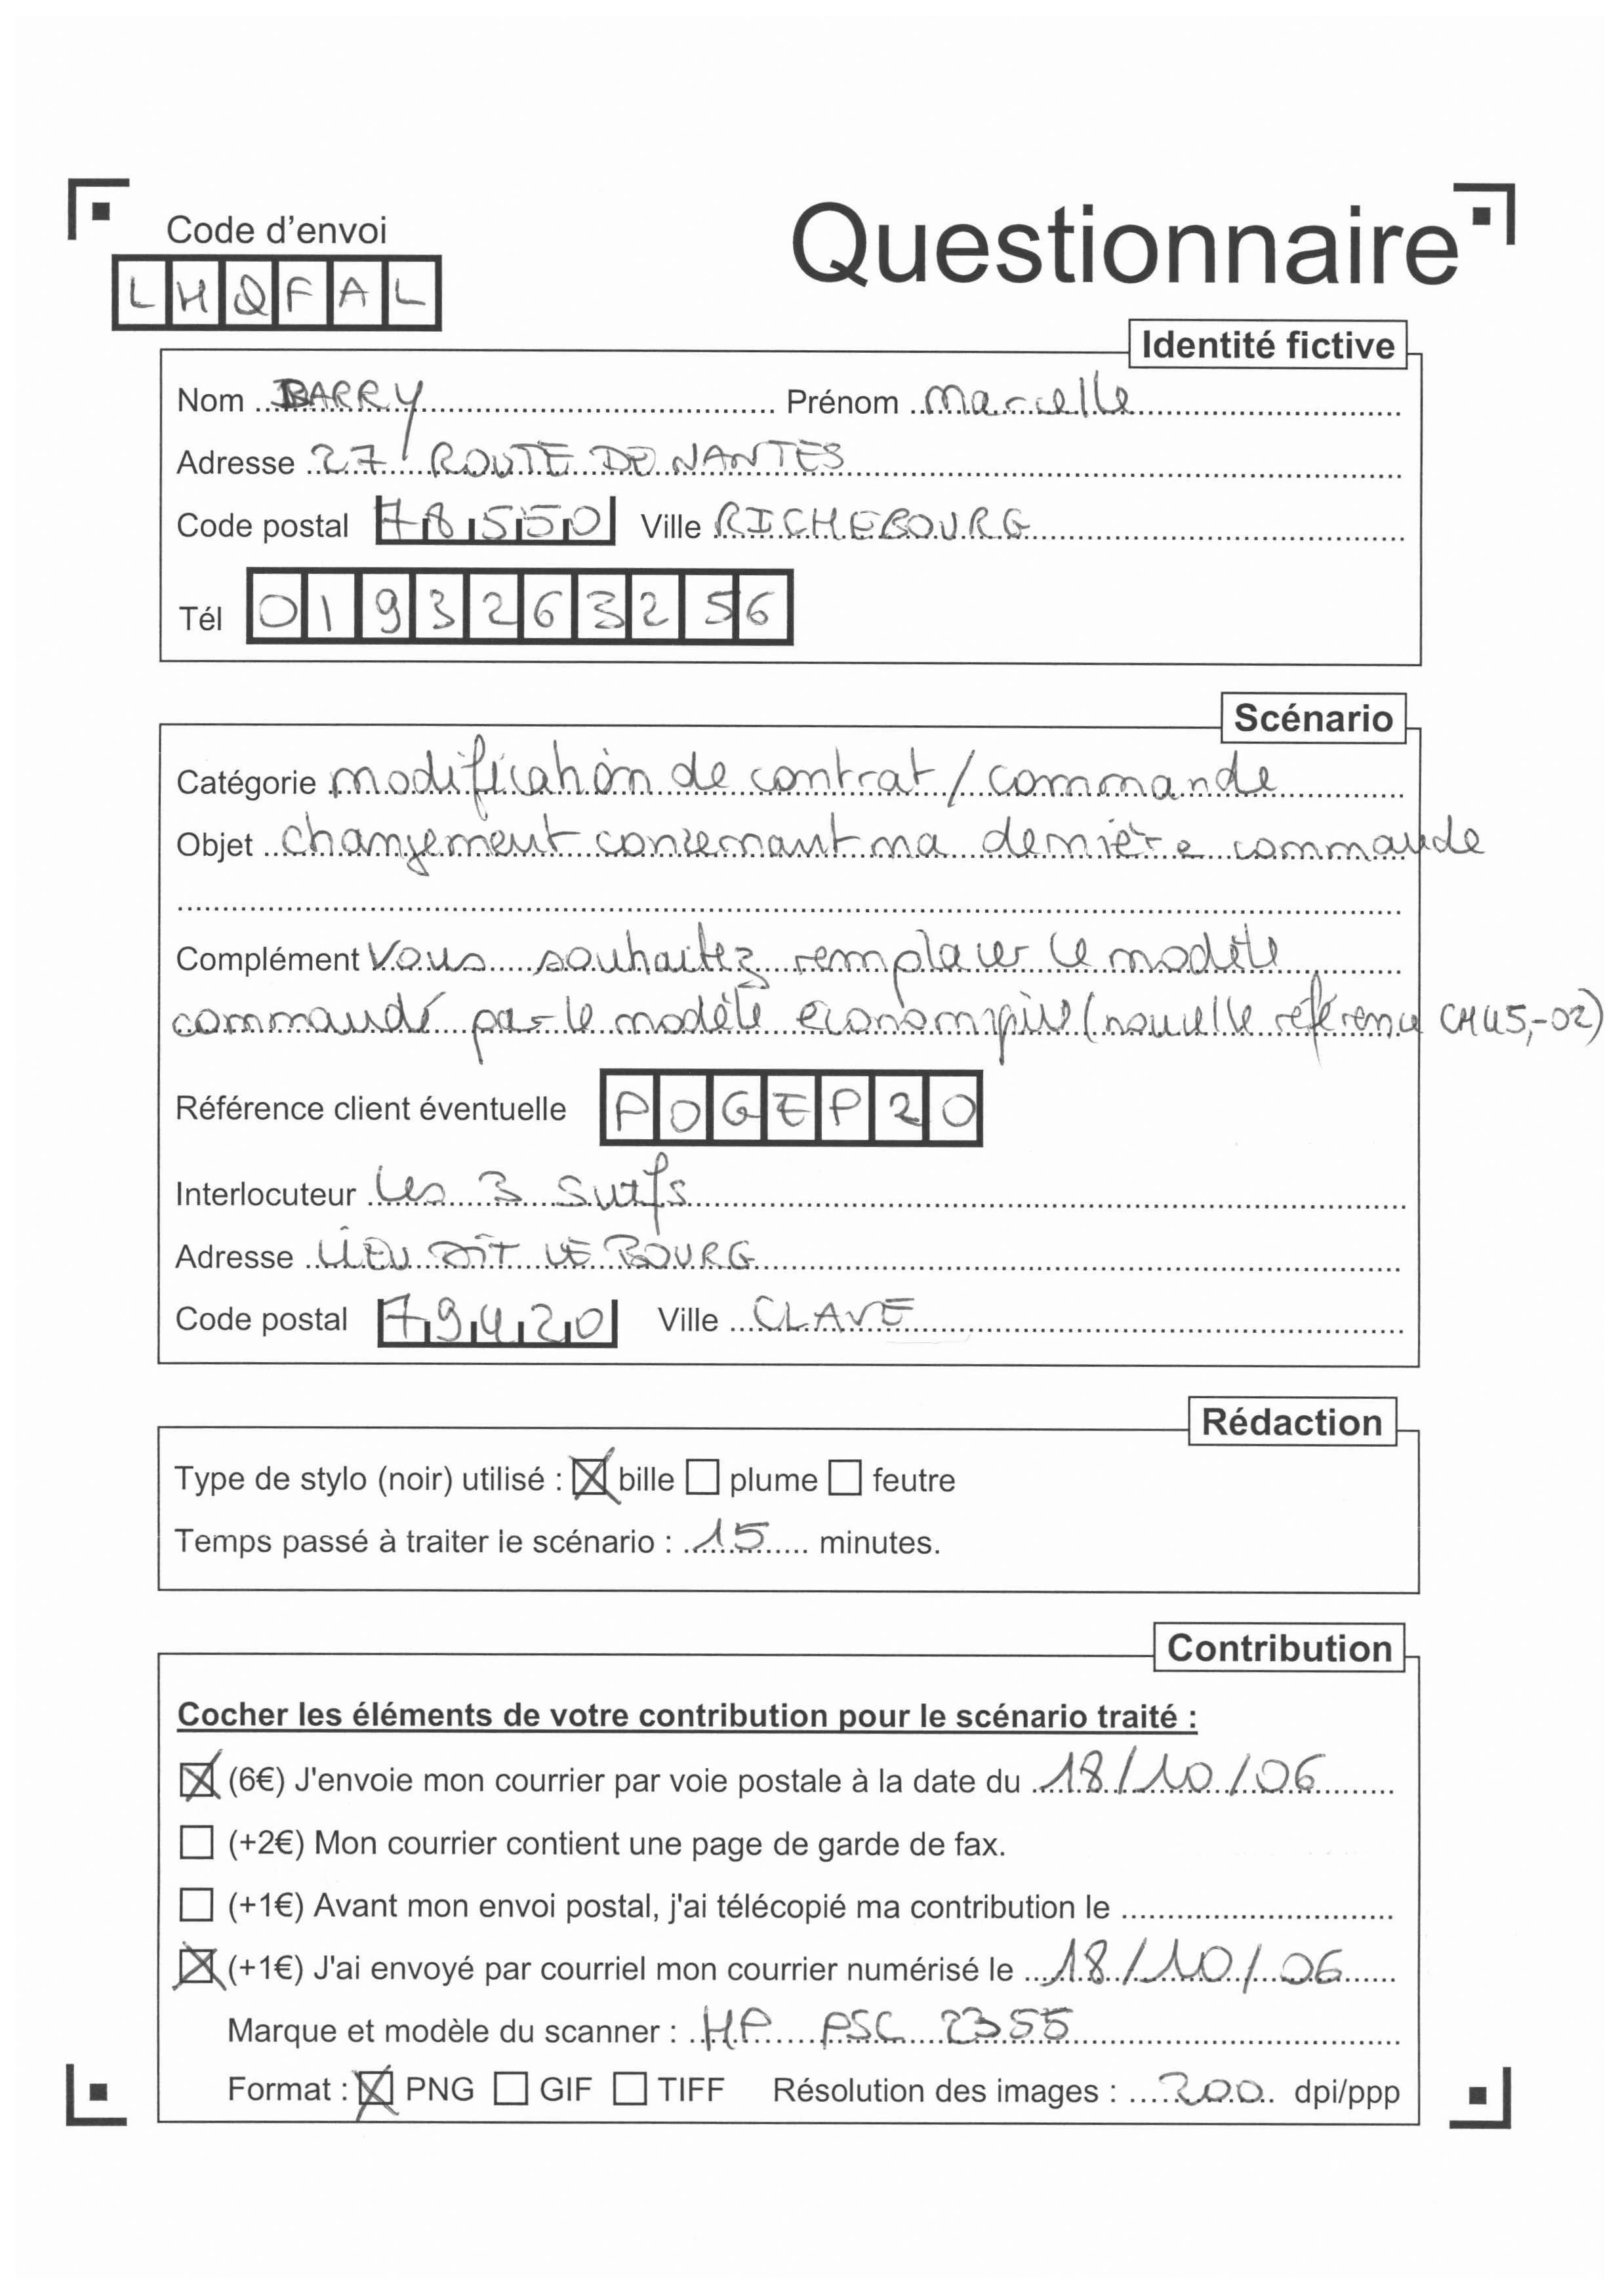 Code d'envoi
Questionnaire
LHQFAL
Identité fictive
Nom BARRY Prénom Marcelle
Adresse 27 ROUTE DE NANTES
Code postal 78550 Ville RICHEBOURG
Tél 0193263256
Scénario
Catégorie modification de contrat / commande
Objet changement concernant ma dernière commande
Complément Vous souhaitez remplacer le modèle
commandé par le modèle économique (nouvelle référence
Référence client éventuelle POGEP20
Interlocuteur Les 3 Suifs
Adresse LIEU DIT LE BOURG
Code postal 79420 Ville CLAVE
Rédaction
Type de stylo (noir) utilisé : bille plume feutre
Temps passé à traiter le scénario : 15 minutes.
Contribution
Cocher les éléments de votre contribution pour le scénario traité :
(6€) J'envoie mon courrier par voie postale à la date du 18/10/06
(+2€) Mon courrier contient une page de garde de fax.
(+1€) Avant mon envoi postal, j'ai télécopié ma contribution le
(+1€) J'ai envoyé par courriel mon courrier numérisé le 18/10/06
Marque et modèle du scanner : HP PSC 2355
Format : PNG GIF TIFF Résolution des images : 200 dpi/ppp